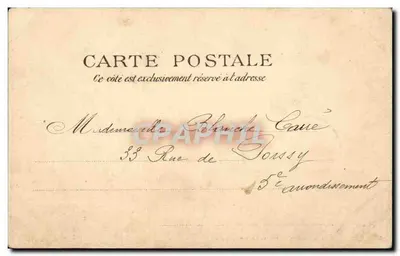 CARTE POSTALE
Ce côté est exclusivement réservé à l'adresse
Mademoiselle Blanche Carré
CPAPHIL
33 Rue de Poissy
5e arrondissement